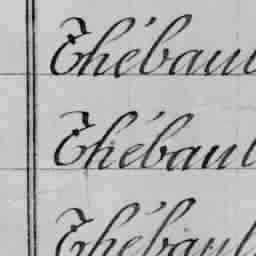 Thébaul
Thébaul
Thébaul